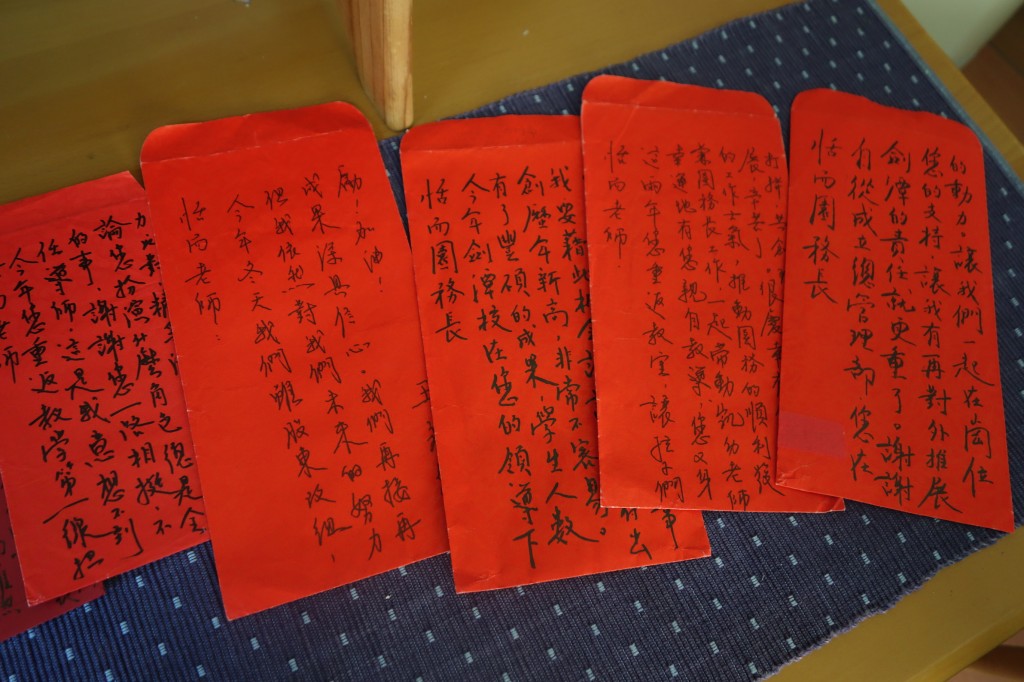 老師
今年您重返教学第一線担
任導師,這是我意想不到
的事,謝謝您一路相挺,不
論您扮演什麼角色總是全
力
恬而老師:
今年冬天我們雖股東改組,
但我依然對我們未來的努力
成果深具信心,我們再接再
勵!加油!
恬而園務長
今年劍潭校在您的領導下
有了豐碩的成果,學生人數
創歷年新高,非常不容易。
我要藉此機會
恬而老師:
這兩年您重返教室,讓孩子們
幸運地有您親自教導,您又身
兼園務長工作,一起帶動凱幼老師
的工作士氣,推動園務的順利發
展,辛苦了,很慶幸
打拼共創
恬而園務長
自從成立總管理部,您在
劍潭的責任就更重了。謝謝
您的支持,讓我有再對外推展
的動力。讓我們一起在崗位